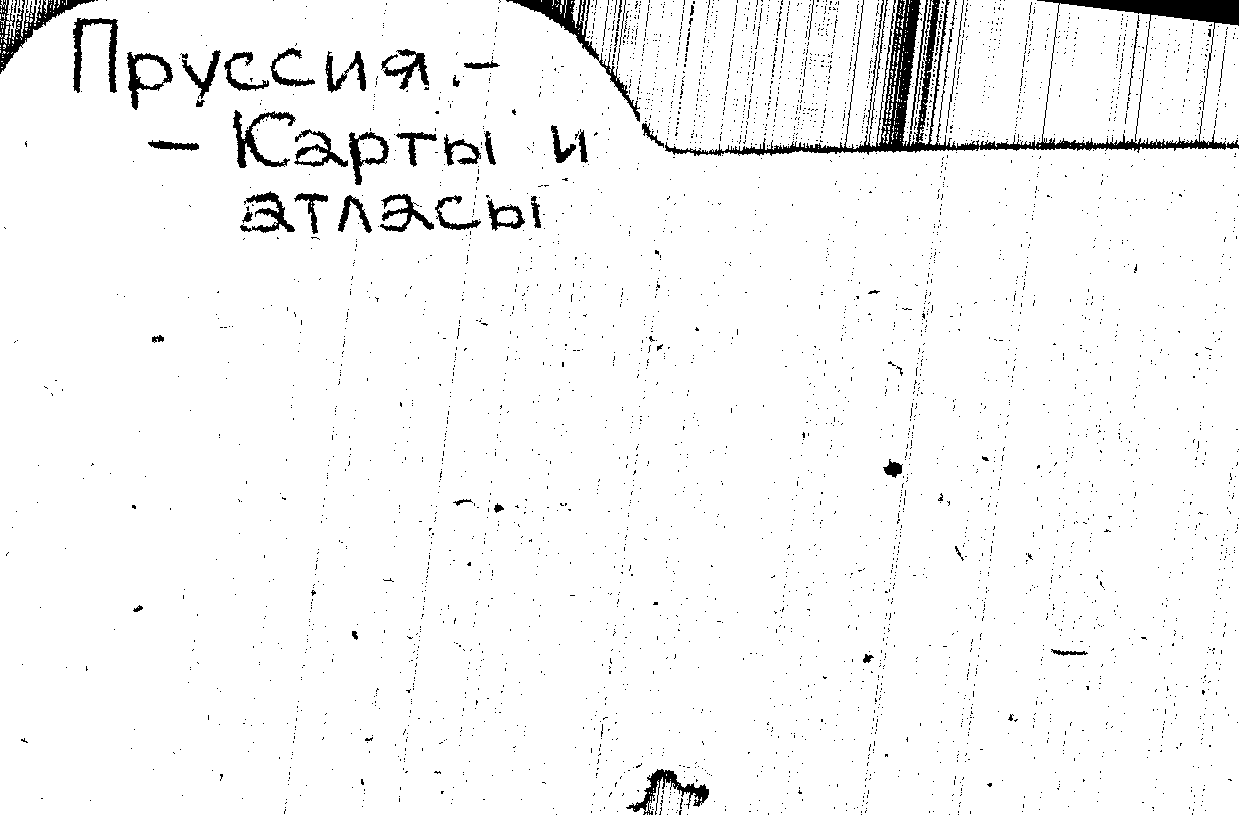 Пруссия.-
- Карты и
атласы